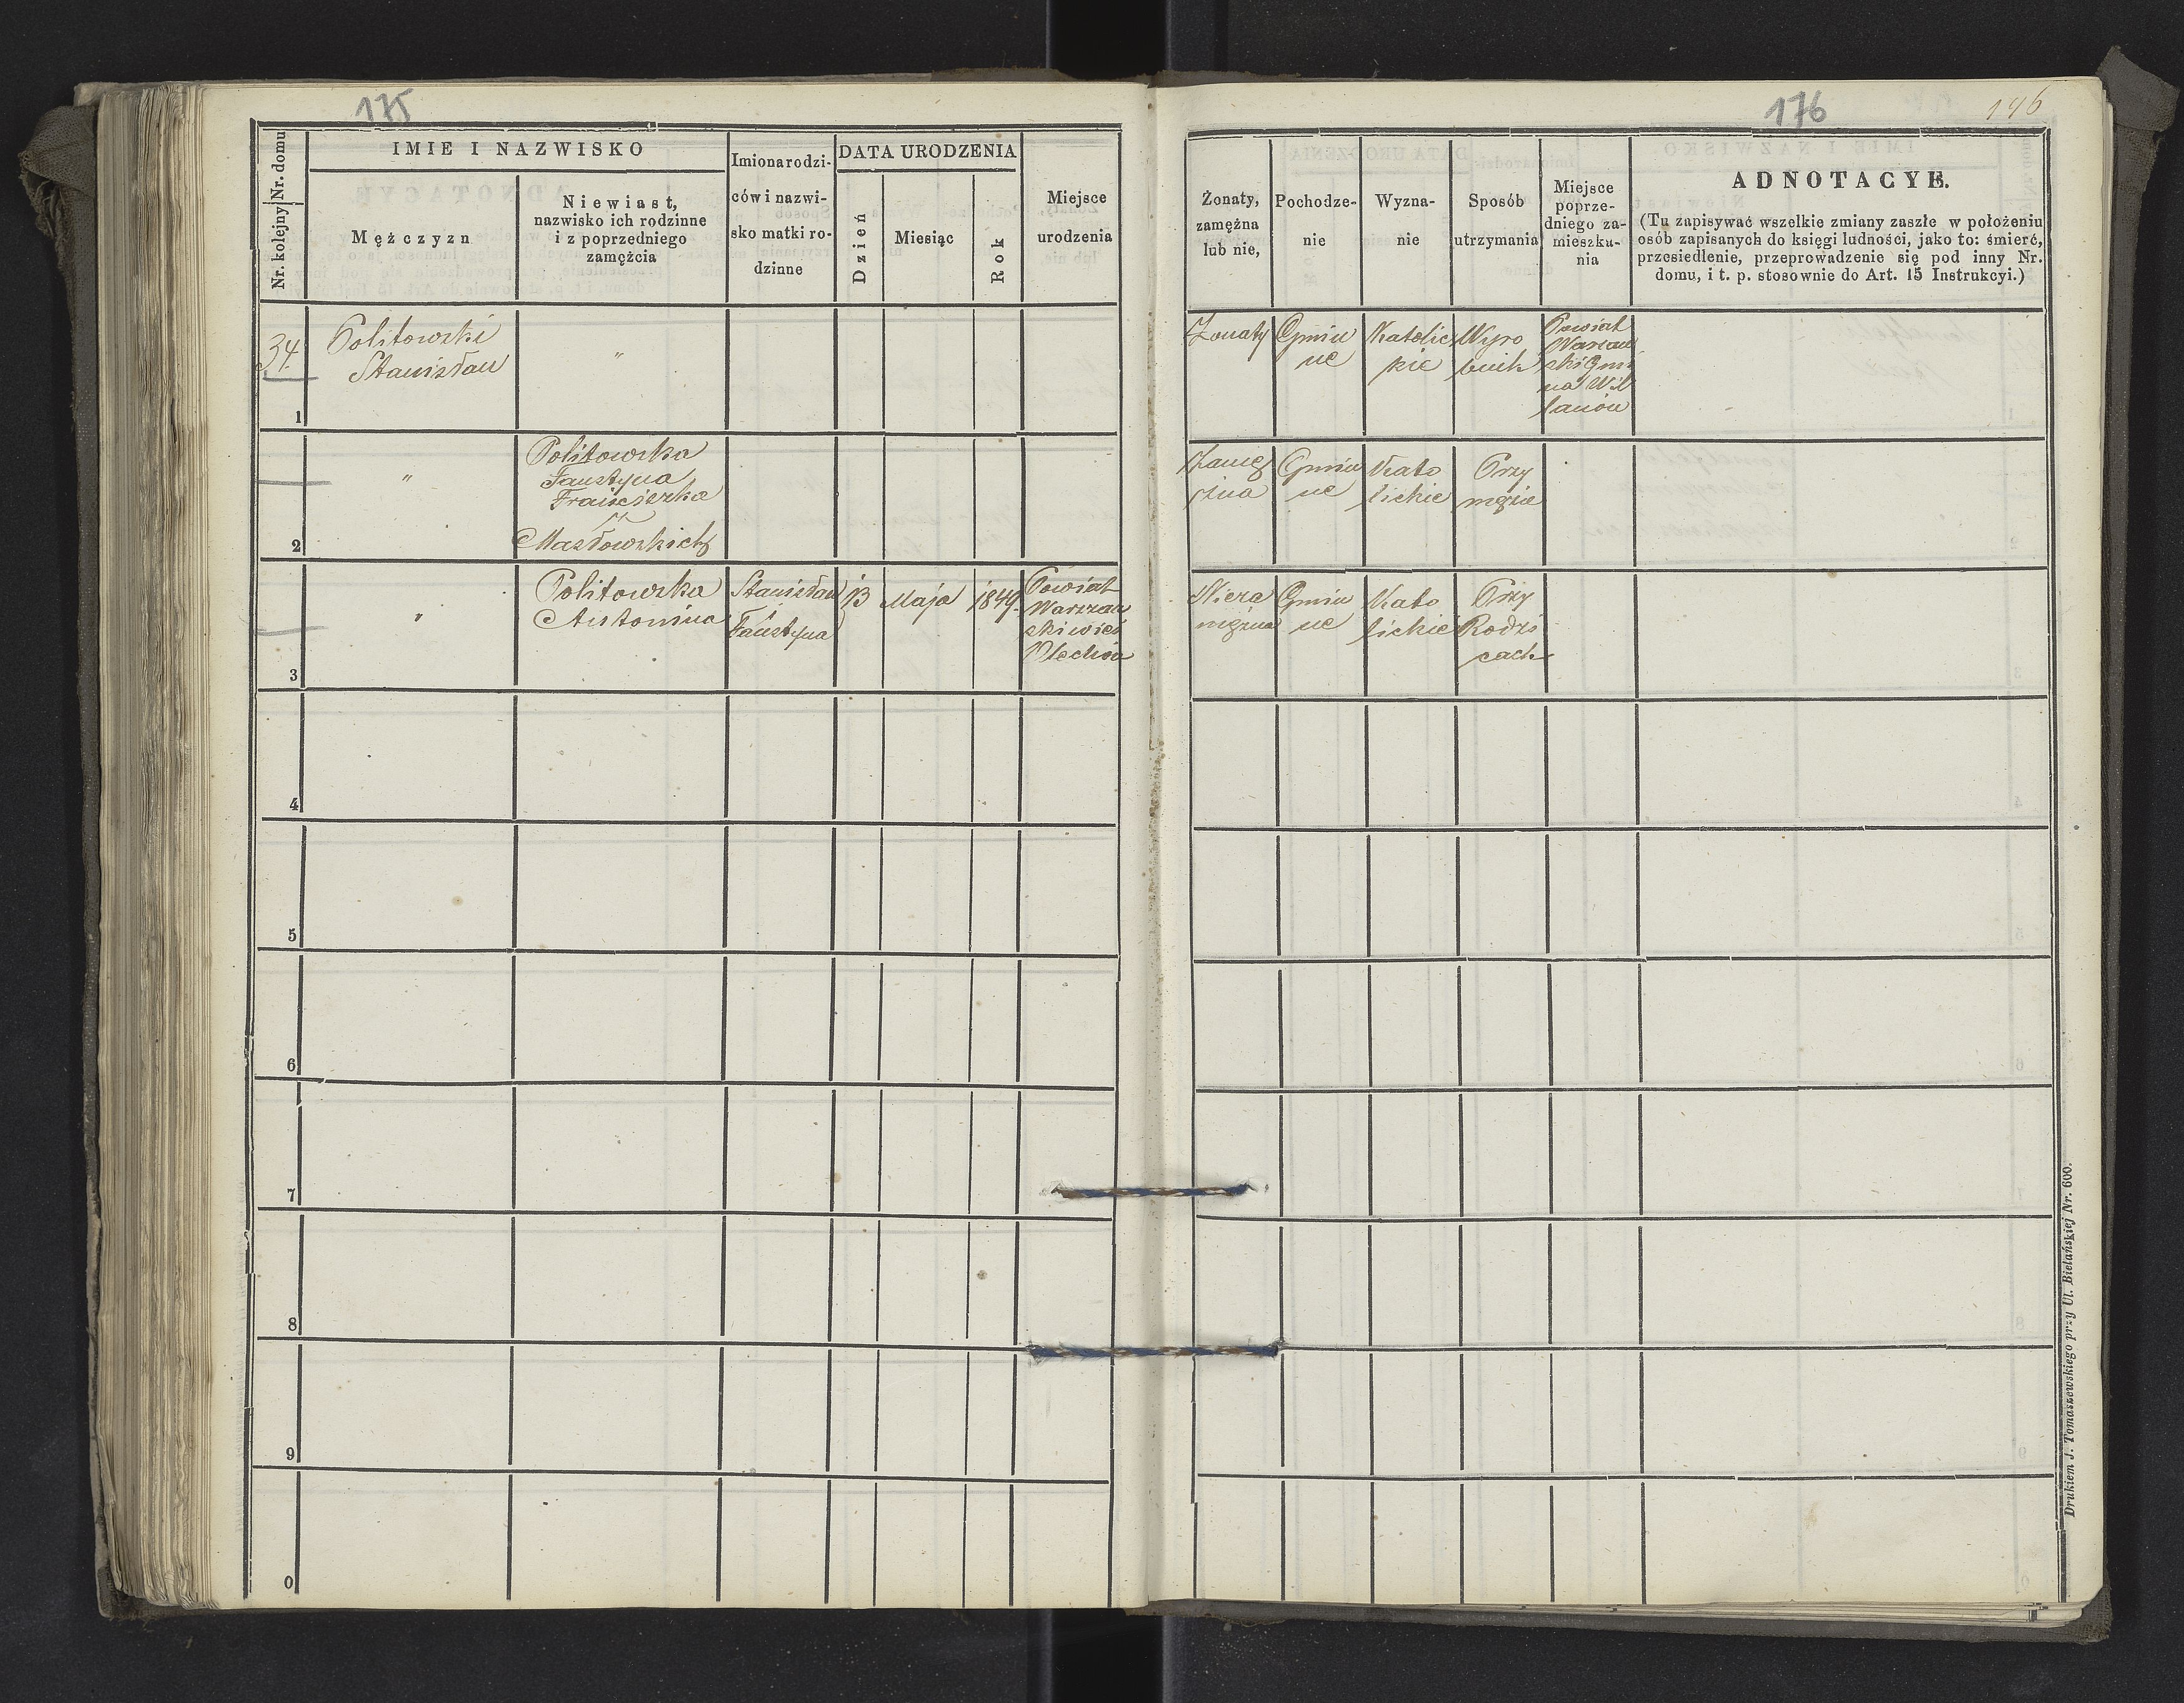 175
Nr. kolejny Nr. domu
IMIE I NAZWISKO
Mężczyzn
Niewiast,
nazwisko ich rodzinne
i z poprzedniego
zamęźcia
Imiona rodzi-
ców i nazwi-
sko matki ro-
dzinne
DATA URODZENIA
Dzień
Miesiąc
Rok
Miejsce
urodzenia
34.
1
Politowski
Stanisław
"
2
"
Politowska
Faustyna
Franciszka
z
Masłowskich
3
"
Politowska
Antonina
Stanisław
i
Faustyna
13
Maja
1849.
Powiat
Warszaw
ski wieś
4
5
6
7
8
9
0
176
176
Żonaty,
zamężna
lub nie,
Pochodze-
nie
Wyzna-
nie
Sposób
utrzymania
Miejsce
poprze-
dniego za-
mieszka-
nia
ADNOTACYE.
(Tu zapisywać wszelkie zmiany zaszłe w położeniu
osób zapisanych do księgi ludności, jako to: śmierć,
przesiedlenie, przeprowadzenie się pod inny Nr.
domu, i t. p. stosownie do Art. 15 Instrukcyi.)
Żonaty
Gmin
ne
Katolic
kie
Wyro
bnik
Powiat
Warszaw
ski Gmi
na Wil
lanów
Zamę
żna
Gmin
ne
Kato
lickie
Przy
mężu
Nieza
mężna
Gmin
ne
Kato
lickie
Przy
Rodzi
cach
Drukiem J. Tomaszewskiego przy Ul. Bielańskiej Nr. 600.